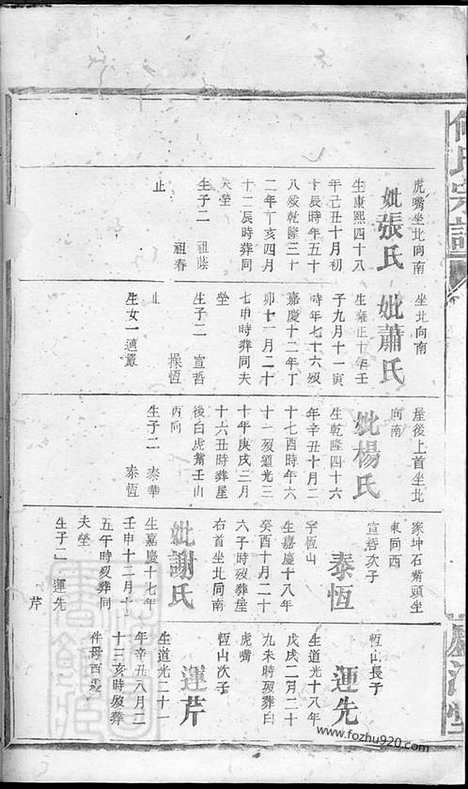 虎嘴坐北向南
妣張氏
生康熙四十八
年己丑十月初
八歿乾隆三十
二年丁亥四月
十二辰時葬同
夫塋
生子二 祖蔭
祖春
止
坐北向南
妣蕭氏
生雍正十年壬
子九月十一寅
時年七十六歿
嘉慶十二年丁
卯十一月二十
七申時葬同夫
塋
生子二 宣哲
操恆
止
生女一適嚴
屋後上首坐北
向南
妣楊氏
生乾隆四十六
年辛丑十月二
十七酉時年六
十一歿道光三
十年庚戌三月
十六丑時葬屋
後白虎嘴壬山
丙向
生子二 泰華
泰恆
家坤石嘴頭坐
東向西
宣哲次子
泰恆
字恆山
生嘉慶十八年
癸酉十月二十
六子時歿葬屋
右首坐北向南
妣謝氏
生嘉慶十七年
壬申十二月十
五午時歿葬同
夫塋
生子二 運先
芹
恆山長子
運先
生道光十八年
戊戌二月二十
九未時歿葬白
虎嘴
恆山次子
運芹
生道光二十一
年辛丑八月二
十三亥時歿葬
件母西
何氏宗譜
廬江堂
www.fozhu920.com